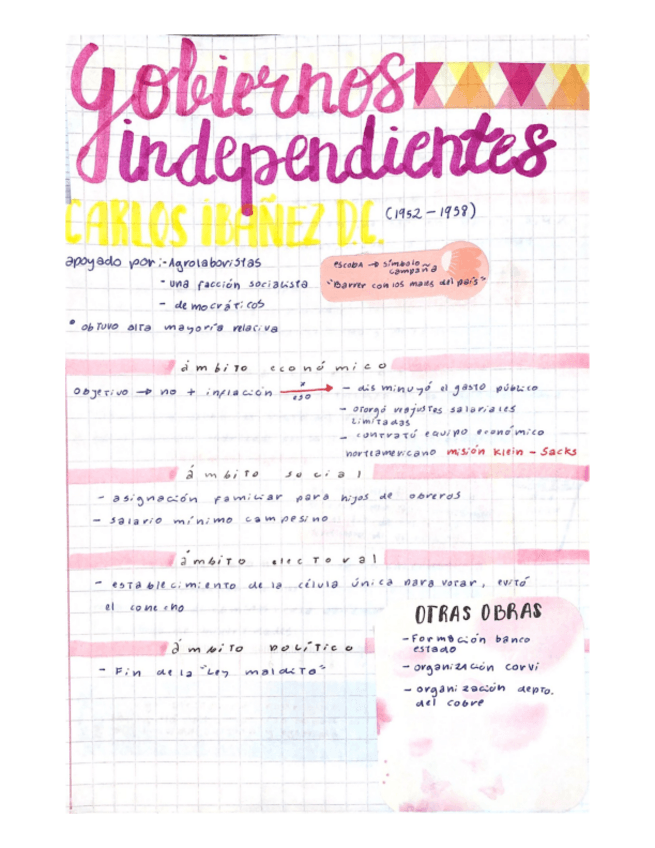 Gobiernos
independientes
CARLOS IBAÑEZ D.C. (1952-1958)
apoyado por:-Agrolaboristas
- una facción socialista
- democráticos
• obtuvo alta mayoría relativa
escoba → símbolo
campaña
"Barrer con los males del país"
ámbito económico
objetivo → no + inflación x eso → - disminuyó el gasto público
- otorgó reajustes salariales
limitadas
- contrató equipo económico
norteamericano misión Klein-Sacks
ámbito social
- asignación familiar para hijos de obreros
- salario mínimo campesino
ámbito electoral
- establecimiento de la célula única para votar, evitó
el cohecho
OTRAS OBRAS
- Formación banco
estado
- organización corvi
- organización depto.
del cobre
ámbito político
- Fin de la "Ley maldita"